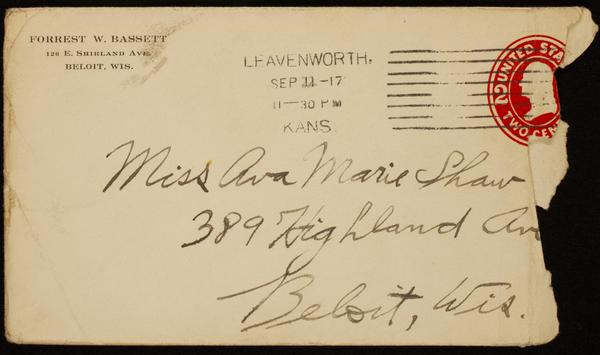 FORREST W. BASSETT
126 E. SHIRLAND AVE.
BELOIT, WIS.
LEAVENWORTH,
SEP 11-17
11-30 PM
KANS.
UNITED STA
2
TWO CEN
Miss Ava Marie Shaw
389 Highland Av
Beloit, Wis.